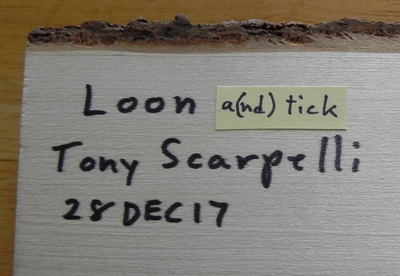 Loon a(nd) tick
Tony Scarpelli
28 DEC 17